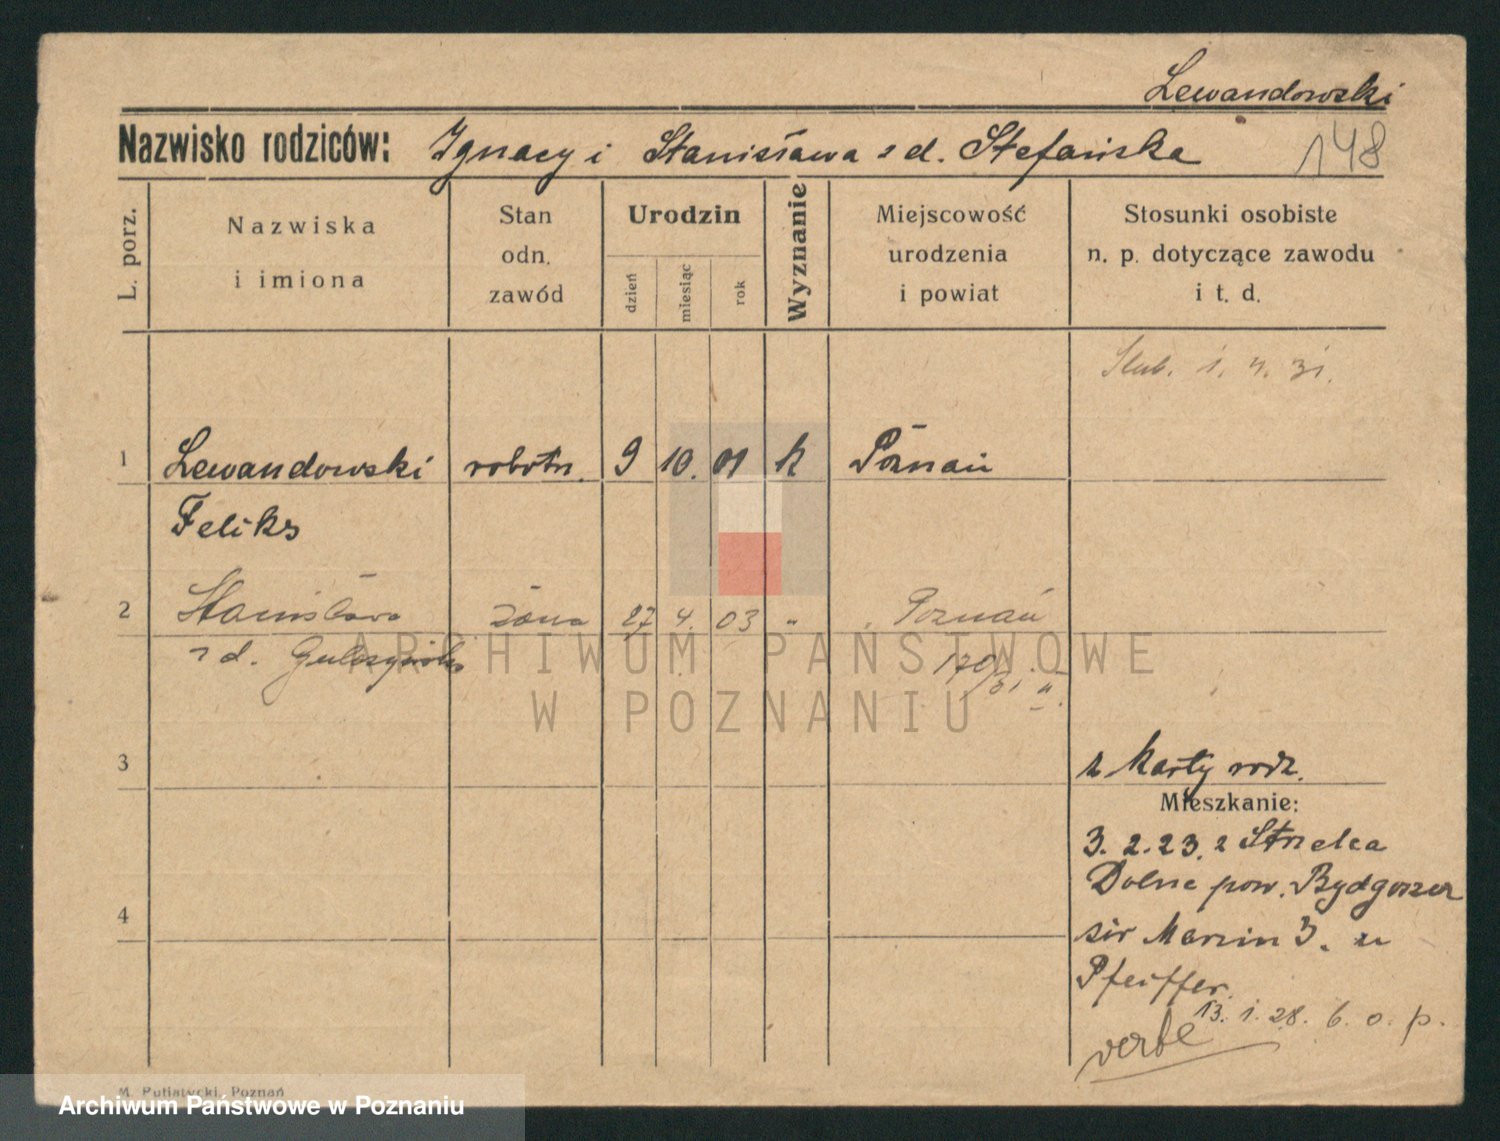 Lewandowski
Nazwisko rodziców: Ignacy i Stanisława z d. Stefańska
148
L. porz.
Nazwiska i imiona
Stan odn. zawód
Urodzin
dzień miesiąc rok
Wyznanie
Miejscowość urodzenia i powiat
Stosunki osobiste n. p. dotyczące zawodu i t. d.
Ślub. 1. 4. 31.
1 Lewandowski robotn. 9 10. 01 k Poznań
Feliks
2 Stanisława żona 27 4. 03 " Poznań
z d.
170/31 II.
3
z karty rodz.
Mieszkanie:
3. 2. 23. z Strzelca
Dolne pow. Bydgoszcz
św Marcin 3. u
4
Pfeiffer.
13. 1. 28. 6. o. p.
M. Putiatycki, Poznań
ARCHIWUM PAŃSTWOWE
W POZNANIU
Archiwum Państwowe w Poznaniu